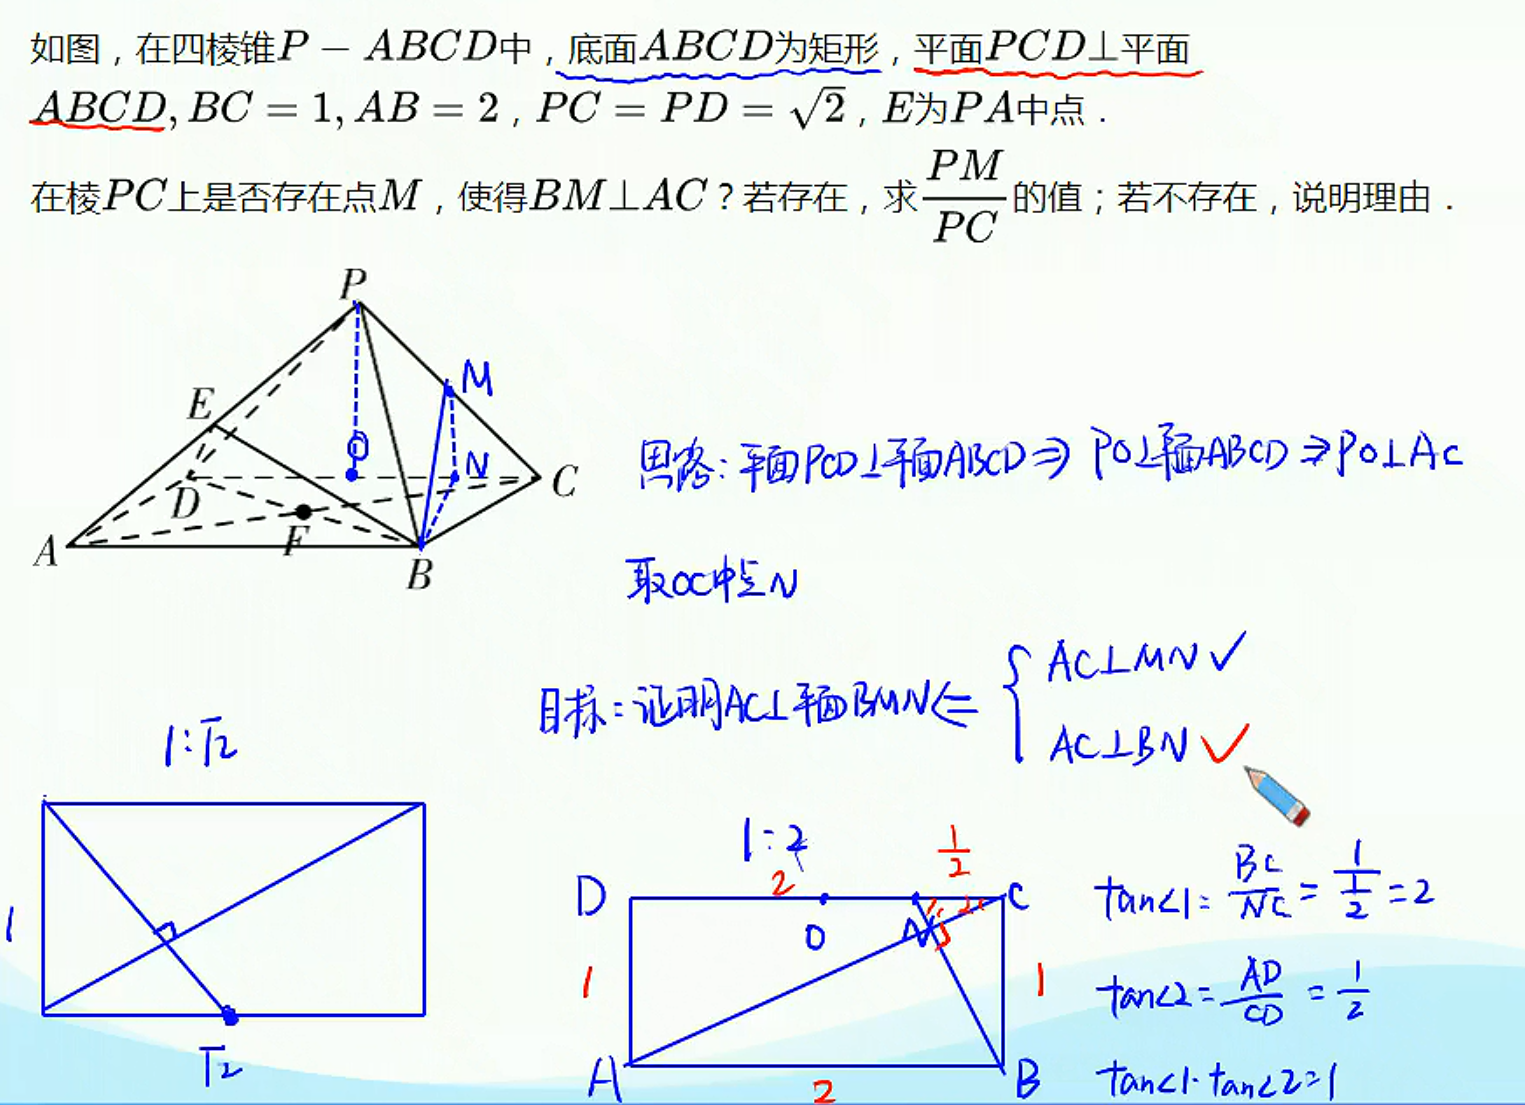 如图，在四棱锥P − ABCD中，底面ABCD为矩形，平面PCD⊥平面
ABCD, BC = 1, AB = 2，PC = PD = √2，E为PA中点．
在棱PC上是否存在点M，使得BM⊥AC？若存在，求PM/PC的值；若不存在，说明理由．
P
M
E
O
N
D
C
F
A
B
思路：平面PCD⊥平面ABCD⇒PO⊥平面ABCD⇒PO⊥AC
取OC中点N
目标：证明AC⊥平面BMN⇐{AC⊥MN✓
AC⊥BN✓
1:√2
1
√2
1:2
2
1/2
D
C
O
N
1
2
3
1
1
A
B
2
tan∠1=BC/NC=1/(1/2)=2
tan∠2=AD/CD=1/2
tan∠1·tan∠2=1